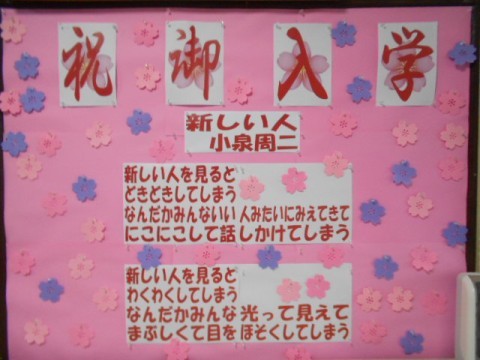 祝御入学
新しい人
小泉周二
新しい人を見ると
どきどきしてしまう
なんだかみんないい人みたいにみえてきて
にこにこして話しかけてしまう
新しい人を見ると
わくわくしてしまう
なんだかみんな光って見えて
まぶしくて目をほそくしてしまう